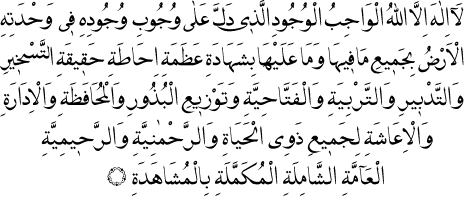 لَٓا اِلٰهَ اِلَّا اللّٰهُ الْوَاجِبُ الْوُجُودِ الَّذ۪ى دَلَّ عَلٰى وُجُوبِ وُجُودِهِ ف۪ى وَحْدَتِهِ
الْاَرْضُ بِجَم۪يعِ مَا ف۪يهَا وَمَا عَلَيْهَا بِشَهَادَةِ عَظَمَةِ اِحَاطَةِ حَق۪يقَةِ التَّسْخ۪يرِ
وَالتَّدْب۪يرِ وَالتَّرْبِيَةِ وَالْفَتَّاحِيَّةِ وَتَوْز۪يعِ الْبُذُورِ وَالْمُحَافَظَةِ وَالْاِدَارَةِ
وَالْاِعَاشَةِ لِجَم۪يعِ ذَوِى الْحَيَاةِ وَالرَّحْمٰنِيَّةِ وَالرَّح۪يمِيَّةِ
الْعَامَّةِ الشَّامِلَةِ الْمُكَمَّلَةِ بِالْمُشَاهَدَةِ ۞